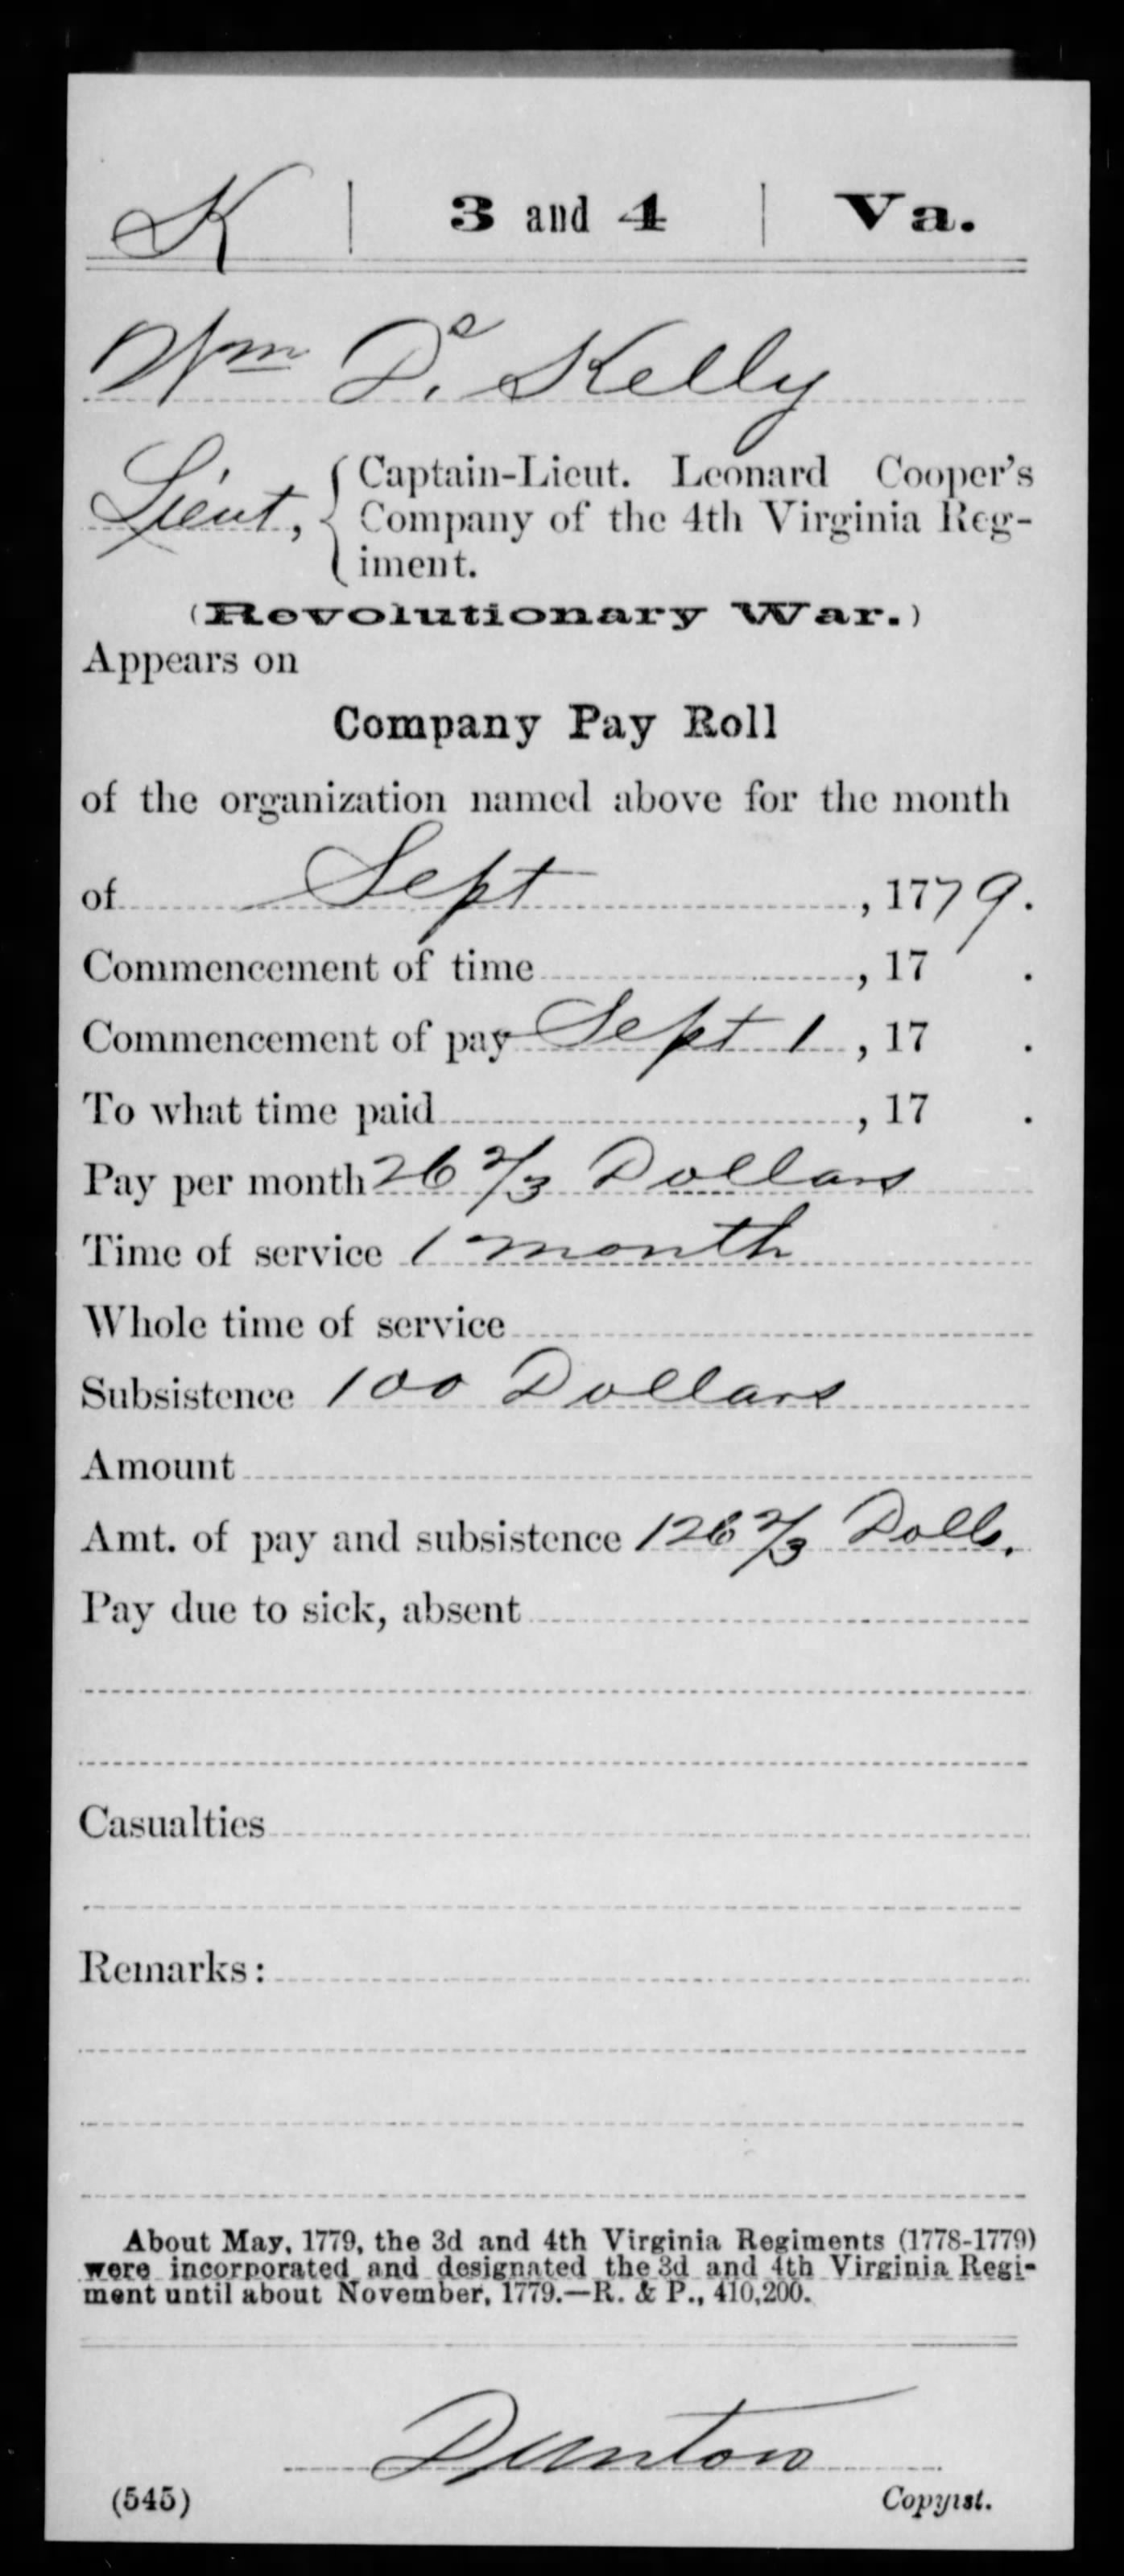 K | 3 and 4 | Va.
Wm De. Kelly
Lieut, { Captain-Lieut. Leonard Cooper's
Company of the 4th Virginia Reg-
iment.
(Revolutionary War.)
Appears on
Company Pay Roll
of the organization named above for the month
of Sept, 1779.
Commencement of time, 17 .
Commencement of pay Sept 1, 17 .
To what time paid, 17 .
Pay per month 26 2/3 Dollars
Time of service 1 month
Whole time of service
Subsistence 100 Dollars
Amount
Amt. of pay and subsistence 126 2/3 Dolls.
Pay due to sick, absent
Casualties
Remarks:
About May, 1779, the 3d and 4th Virginia Regiments (1778-1779)
were incorporated and designated the 3d and 4th Virginia Regi-
ment until about November, 1779.—R. & P., 410,200.
Dunton
(545) Copyist.